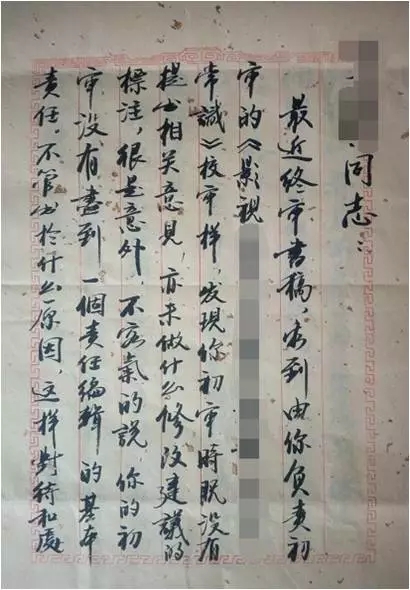 同志：
最近终审書稿，看到由你负责初
审的《影视
常識》校审样，发现你初审时既没有
提出相关意見，亦未做什么修改建議的
標注，很是意外，不客氣的说，你的初
审没有盡到一個责任编辑的基本
责任。不管出於什么原因，这样對待和处